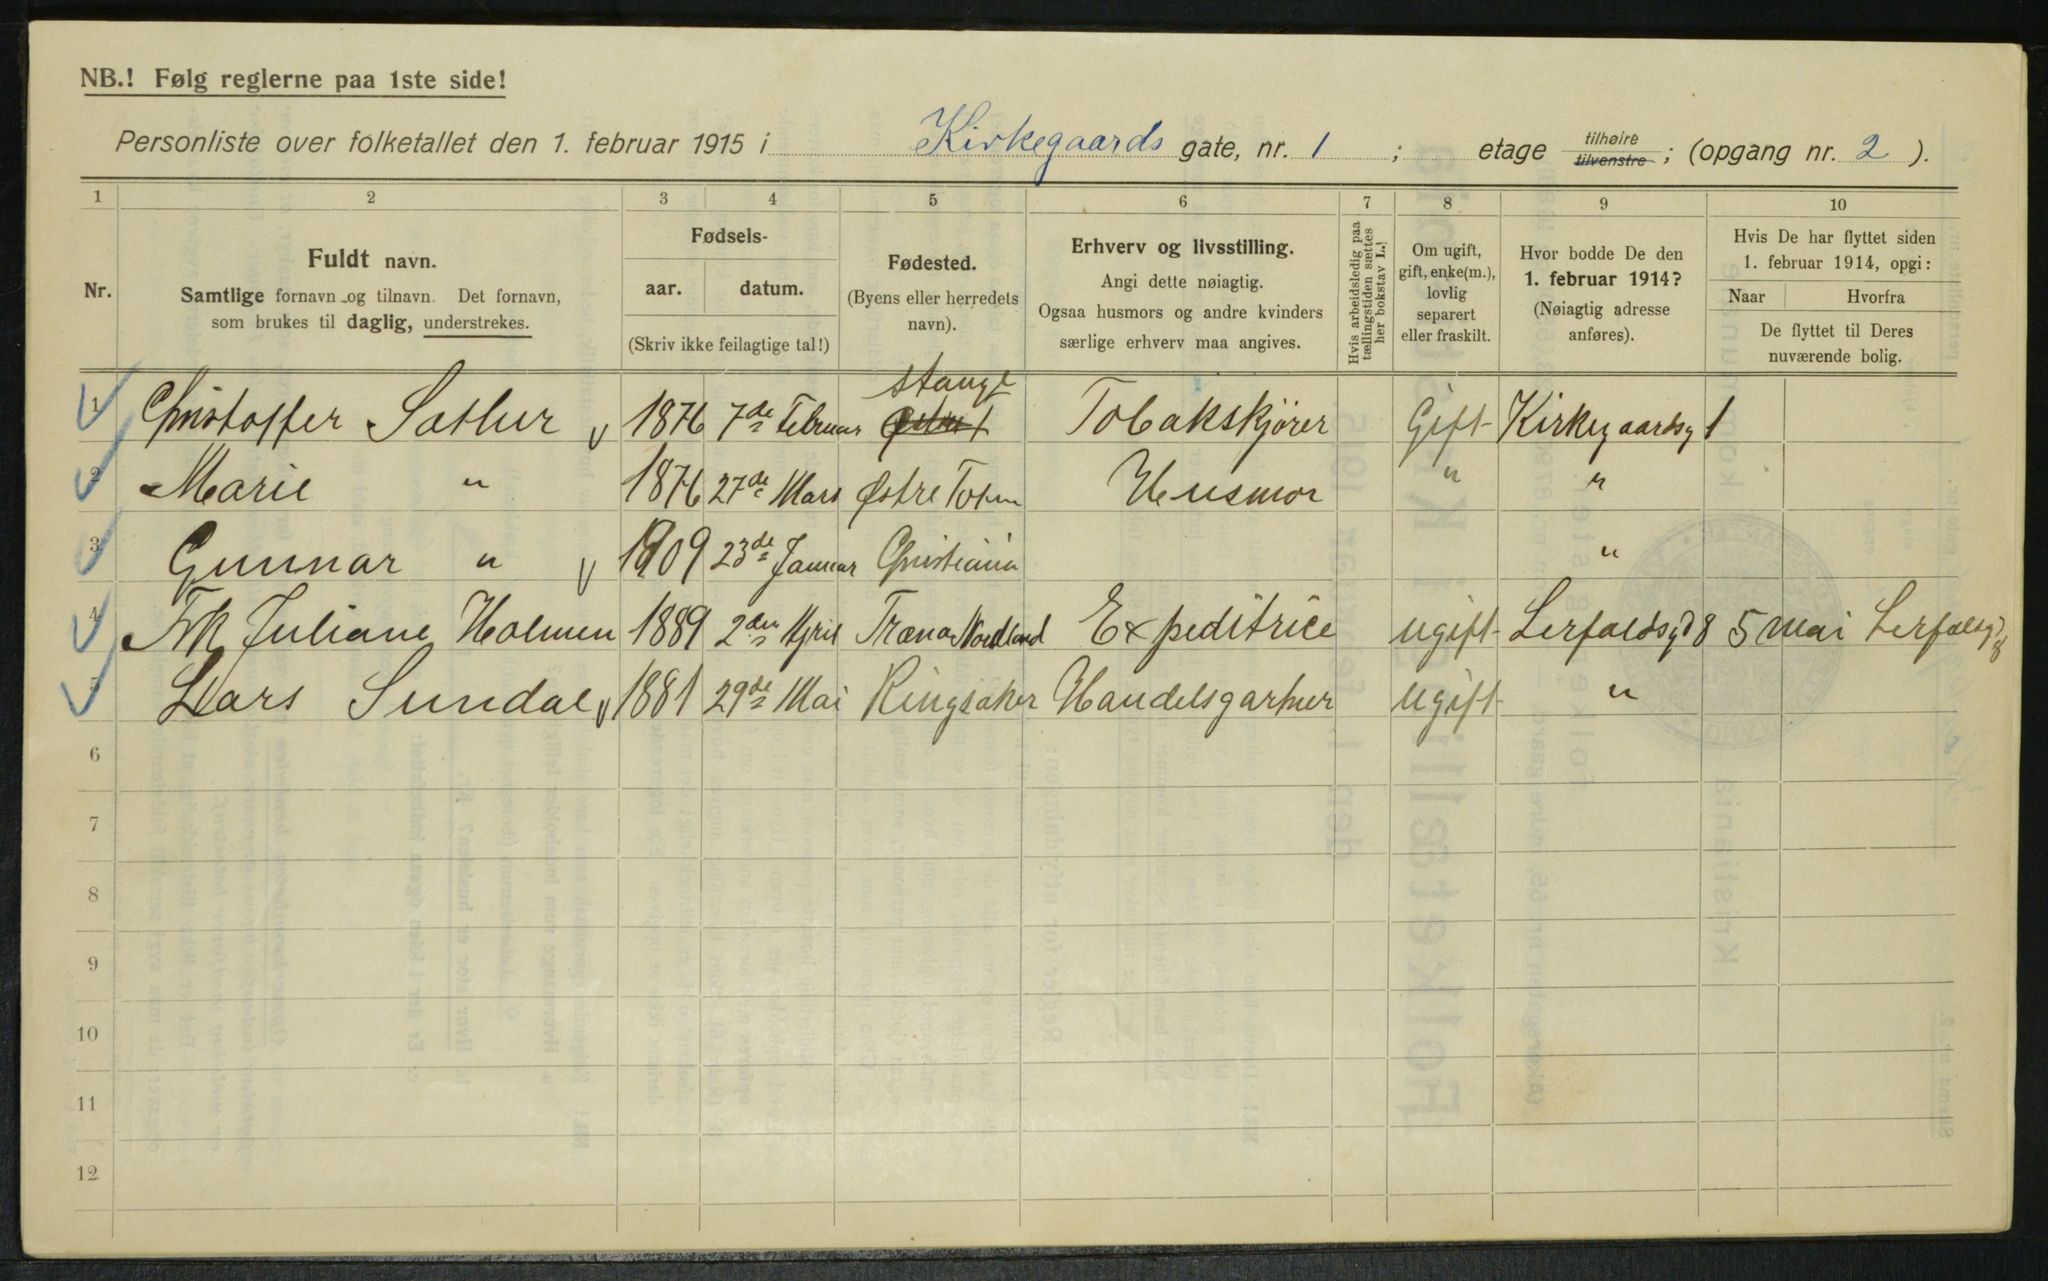 NB.! Følg reglerne paa 1ste side!
Personliste over folketallet den 1. februar 1915 i Kirkegaards gate, nr. 1 ; etage tilhøire tilvenstre ; (opgang nr. 2 ).
1 2 3 4 5 6 7 8 9 10
Nr.
Fuldt navn.
Samtlige fornavn og tilnavn. Det fornavn,
som brukes til daglig, understrekes.
Fødsels-
aar. datum.
(Skriv ikke feilagtige tal!)
Fødested.
(Byens eller herredets
navn).
Erhverv og livsstilling.
Angi dette nøiagtig.
Ogsaa husmors og andre kvinders
særlige erhverv maa angives.
Hvis arbeidsledig paa
tællingstiden sættes
her bokstav L.
Om ugift,
gift, enke(m.),
lovlig
separert
eller fraskilt.
Hvor bodde De den
1. februar 1914?
(Nøiagtig adresse
anføres).
Hvis De har flyttet siden
1. februar 1914, opgi:
Naar Hvorfra
De flyttet til Deres
nuværende bolig.
Stange
1 Christoffer 1876 7de Februar Tobakskjører Gift Kirkegaardsg 1
2 Marie " 1876 27de Mars Østre Toten Husmor " "
3 Gunnar " 1909 23de Januar Christiania "
4 Frk Juliane Holmen 1889 2den April Træna Nordland Expeditrice ugift Lerfaldsgd 8 5 mai Lerfalsgd 8
5 Lars Sundal 1881 29de Mai Ringsaker Handelsgartner ugift "
6
7
8
9
10
11
12